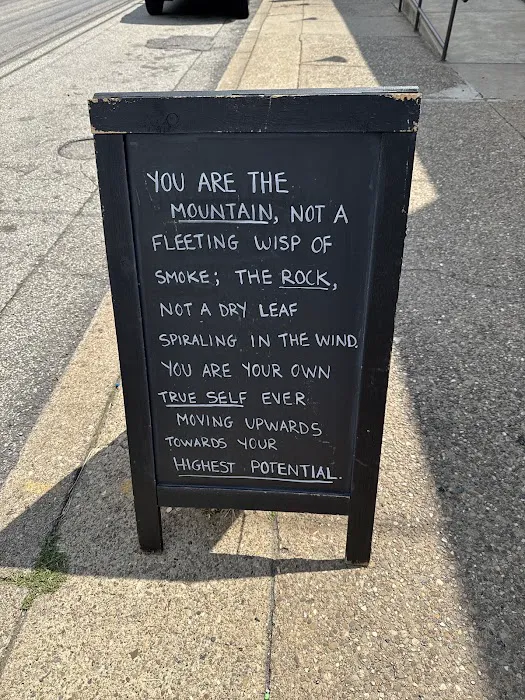 YOU ARE THE
MOUNTAIN, NOT A
FLEETING WISP OF
SMOKE; THE ROCK,
NOT A DRY LEAF
SPIRALING IN THE WIND.
YOU ARE YOUR OWN
TRUE SELF EVER
MOVING UPWARDS
TOWARDS YOUR
HIGHEST POTENTIAL.